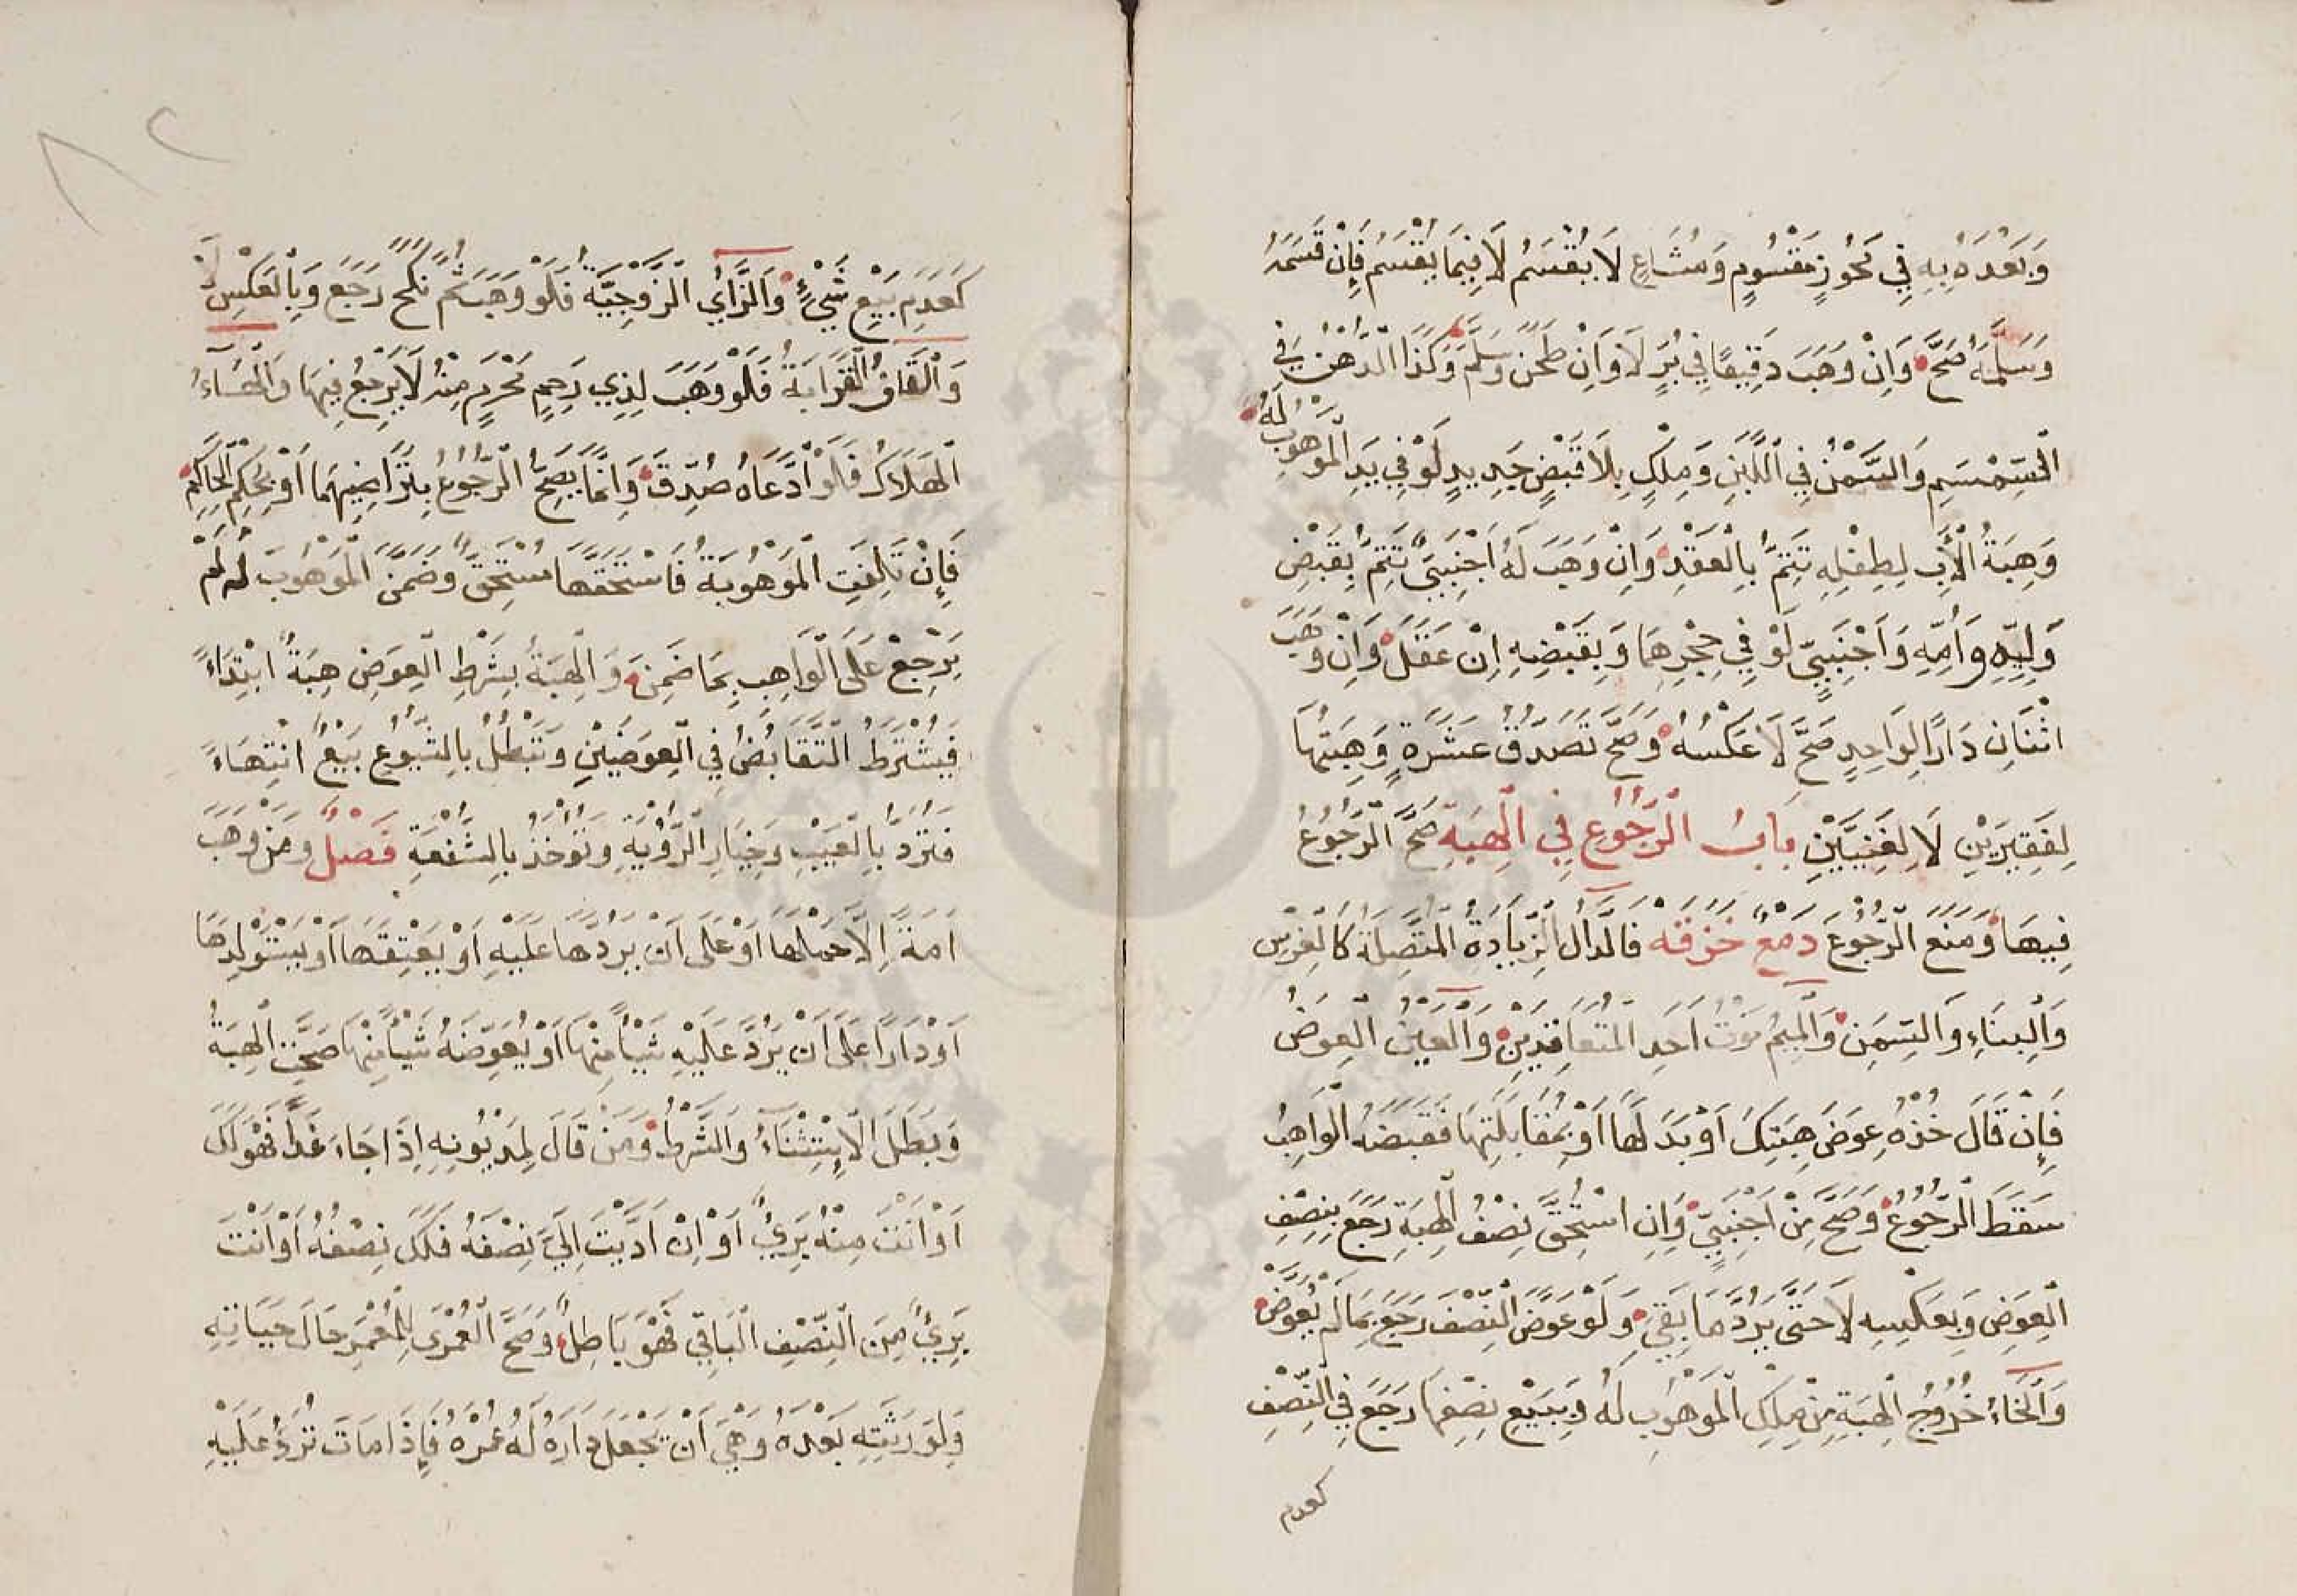 وَبَعْدَهُ بِهِ فِي مَحُوزٍ مَقْسُومٍ وَمُشَاعٍ لَا يُقْسَمُ لَا فِيمَا يُقْسَمُ فَإِنْ قَسَمَهُ
وَسَلَّمَهُ صَحَّ وَاِنْ وَهَبَ دَقِيقًا فِي بُرٍّ لَا وَاِنْ طَحَنَ وَسَلَّمَ وَكَذَا الدُّهْنُ فِي
السِّمْسِمِ وَالسَّمْنُ فِي اللَّبَنِ وَمِلْكٍ بِلَا قَبْضٍ جَدِيدٍ لَوْ فِي يَدِ الْمَوْهُوبِ لَهُ
وَهِبَةُ الْأَبِ لِطِفْلِهِ تَتِمُّ بِالْعَقْدِ وَاِنْ وَهَبَ لَهُ اَجْنَبِيٌّ تَتِمُّ بِقَبْضِ
وَلِيِّهِ وَاُمِّهِ وَاَجْنَبِيٍّ لَوْ فِي حِجْرِهِمَا وَبِقَبْضِهِ اِنْ عَقَلَ وَاِنْ وَهَبَ
اثْنَانِ دَارًا لِوَاحِدٍ صَحَّ لَا عَكْسُهُ وَصَحَّ تَصَدُّقُ عَشَرَةٍ وَهِبَتُهَا
لِفَقِيرَيْنِ لَا لِغَنِيَّيْنِ بَابُ الرُّجُوعِ فِي الْهِبَةِ صَحَّ الرُّجُوعُ
فِيهَا وَمَنَعَ الرُّجُوعَ دَمْعٌ خَزَقَهُ فَالدَّالُ الزِّيَادَةُ الْمُتَّصِلَةُ كَالْغَرْسِ
وَالْبِنَاءِ وَالسِّمَنِ وَالْمِيمُ مَوْتُ اَحَدِ الْمُتَعَاقِدَيْنِ وَالْعَيْنُ الْعِوَضُ
فَإِنْ قَالَ خُذْهُ عِوَضَ هِبَتِكَ اَوْ بَدَلَهَا اَوْ بِمُقَابَلَتِهَا فَقَبَضَهُ الْوَاهِبُ
سَقَطَ الرُّجُوعُ وَصَحَّ مِنْ اَجْنَبِيٍّ وَاِنِ اسْتُحِقَّ نِصْفُ الْهِبَةِ رَجَعَ بِنِصْفِ
الْعِوَضِ وَبِعَكْسِهِ لَا حَتَّى يَرُدَّ مَا بَقِيَ وَلَوْ عَوَّضَ النِّصْفَ رَجَعَ بِمَا لَمْ يُعَوَّضْ
وَالْخَاءُ خُرُوجُ الْهِبَةِ مِنْ مِلْكِ الْمَوْهُوبِ لَهُ وَبِبَيْعِ نِصْفِهَا رَجَعَ فِي النِّصْفِ
كعدم
٨٢
كَعَدَمِ بَيْعِ شَيْءٍ وَالزَّايُ الزَّوْجِيَّةُ فَلَوْ وَهَبَ ثُمَّ نَكَحَ رَجَعَ وَبِالْعَكْسِ لَا
وَالْقَافُ الْقَرَابَةُ فَلَوْ وَهَبَ لِذِي رَحِمٍ مَحْرَمٍ مِنْهُ لَا يَرْجِعُ فِيهَا وَالْهَاءُ
الْهَلَاكُ فَلَوْ ادَّعَاهُ صُدِّقَ وَاِنَّمَا يَصِحُّ الرُّجُوعُ بِتَرَاضِيهِمَا اَوْ بِحُكْمِ الْحَاكِمِ
فَإِنْ تَلِفَتِ الْمَوْهُوبَةُ فَاسْتَحَقَّهَا مُسْتَحِقٌّ وَضَمَّنَ الْمَوْهُوبَ لَهُ لَمْ
يَرْجِعْ عَلَى الْوَاهِبِ بِمَا ضَمِنَ وَالْهِبَةُ بِشَرْطِ الْعِوَضِ هِبَةٌ ابْتِدَاءً
فَيُشْتَرَطُ التَّقَابُضُ فِي الْعِوَضَيْنِ وَتَبْطُلُ بِالشُّيُوعِ بَيْعٌ انْتِهَاءً
فَتُرَدُّ بِالْعَيْبِ وَخِيَارِ الرُّؤْيَةِ وَتُؤْخَذُ بِالشُّفْعَةِ فَصْلٌ وَمَنْ وَهَبَ
اَمَةً اِلَّا حَمْلَهَا اَوْ عَلَى اَنْ يَرُدَّهَا عَلَيْهِ اَوْ يُعْتِقَهَا اَوْ يَسْتَوْلِدَهَا
اَوْ دَارًا عَلَى اَنْ يَرُدَّ عَلَيْهِ شَيْئًا مِنْهَا اَوْ يُعَوِّضَهُ شَيْئًا مِنْهَا صَحَّتِ الْهِبَةُ
وَبَطَلَ الْاِسْتِثْنَاءُ وَالشَّرْطُ وَمَنْ قَالَ لِمَدْيُونِهِ اِذَا جَاءَ غَدًا فَهُوَ لَكَ
اَوْ اَنْتَ مِنْهُ بَرِيٌّ اَوْ اِنْ اَدَّيْتَ اِلَيَّ نِصْفَهُ فَلَكَ نِصْفُهُ اَوْ اَنْتَ
بَرِيٌّ مِنَ النِّصْفِ الْبَاقِي فَهُوَ بَاطِلٌ وَصَحَّ الْعُمْرَى لِلْمُعْمَرِ حَالَ حَيَاتِهِ
وَلِوَرَثَتِهِ بَعْدَهُ وَهِيَ اَنْ يَجْعَلَ دَارَهُ لَهُ عُمْرَهُ فَإِذَا مَاتَ تُرَدُّ عَلَيْهِ